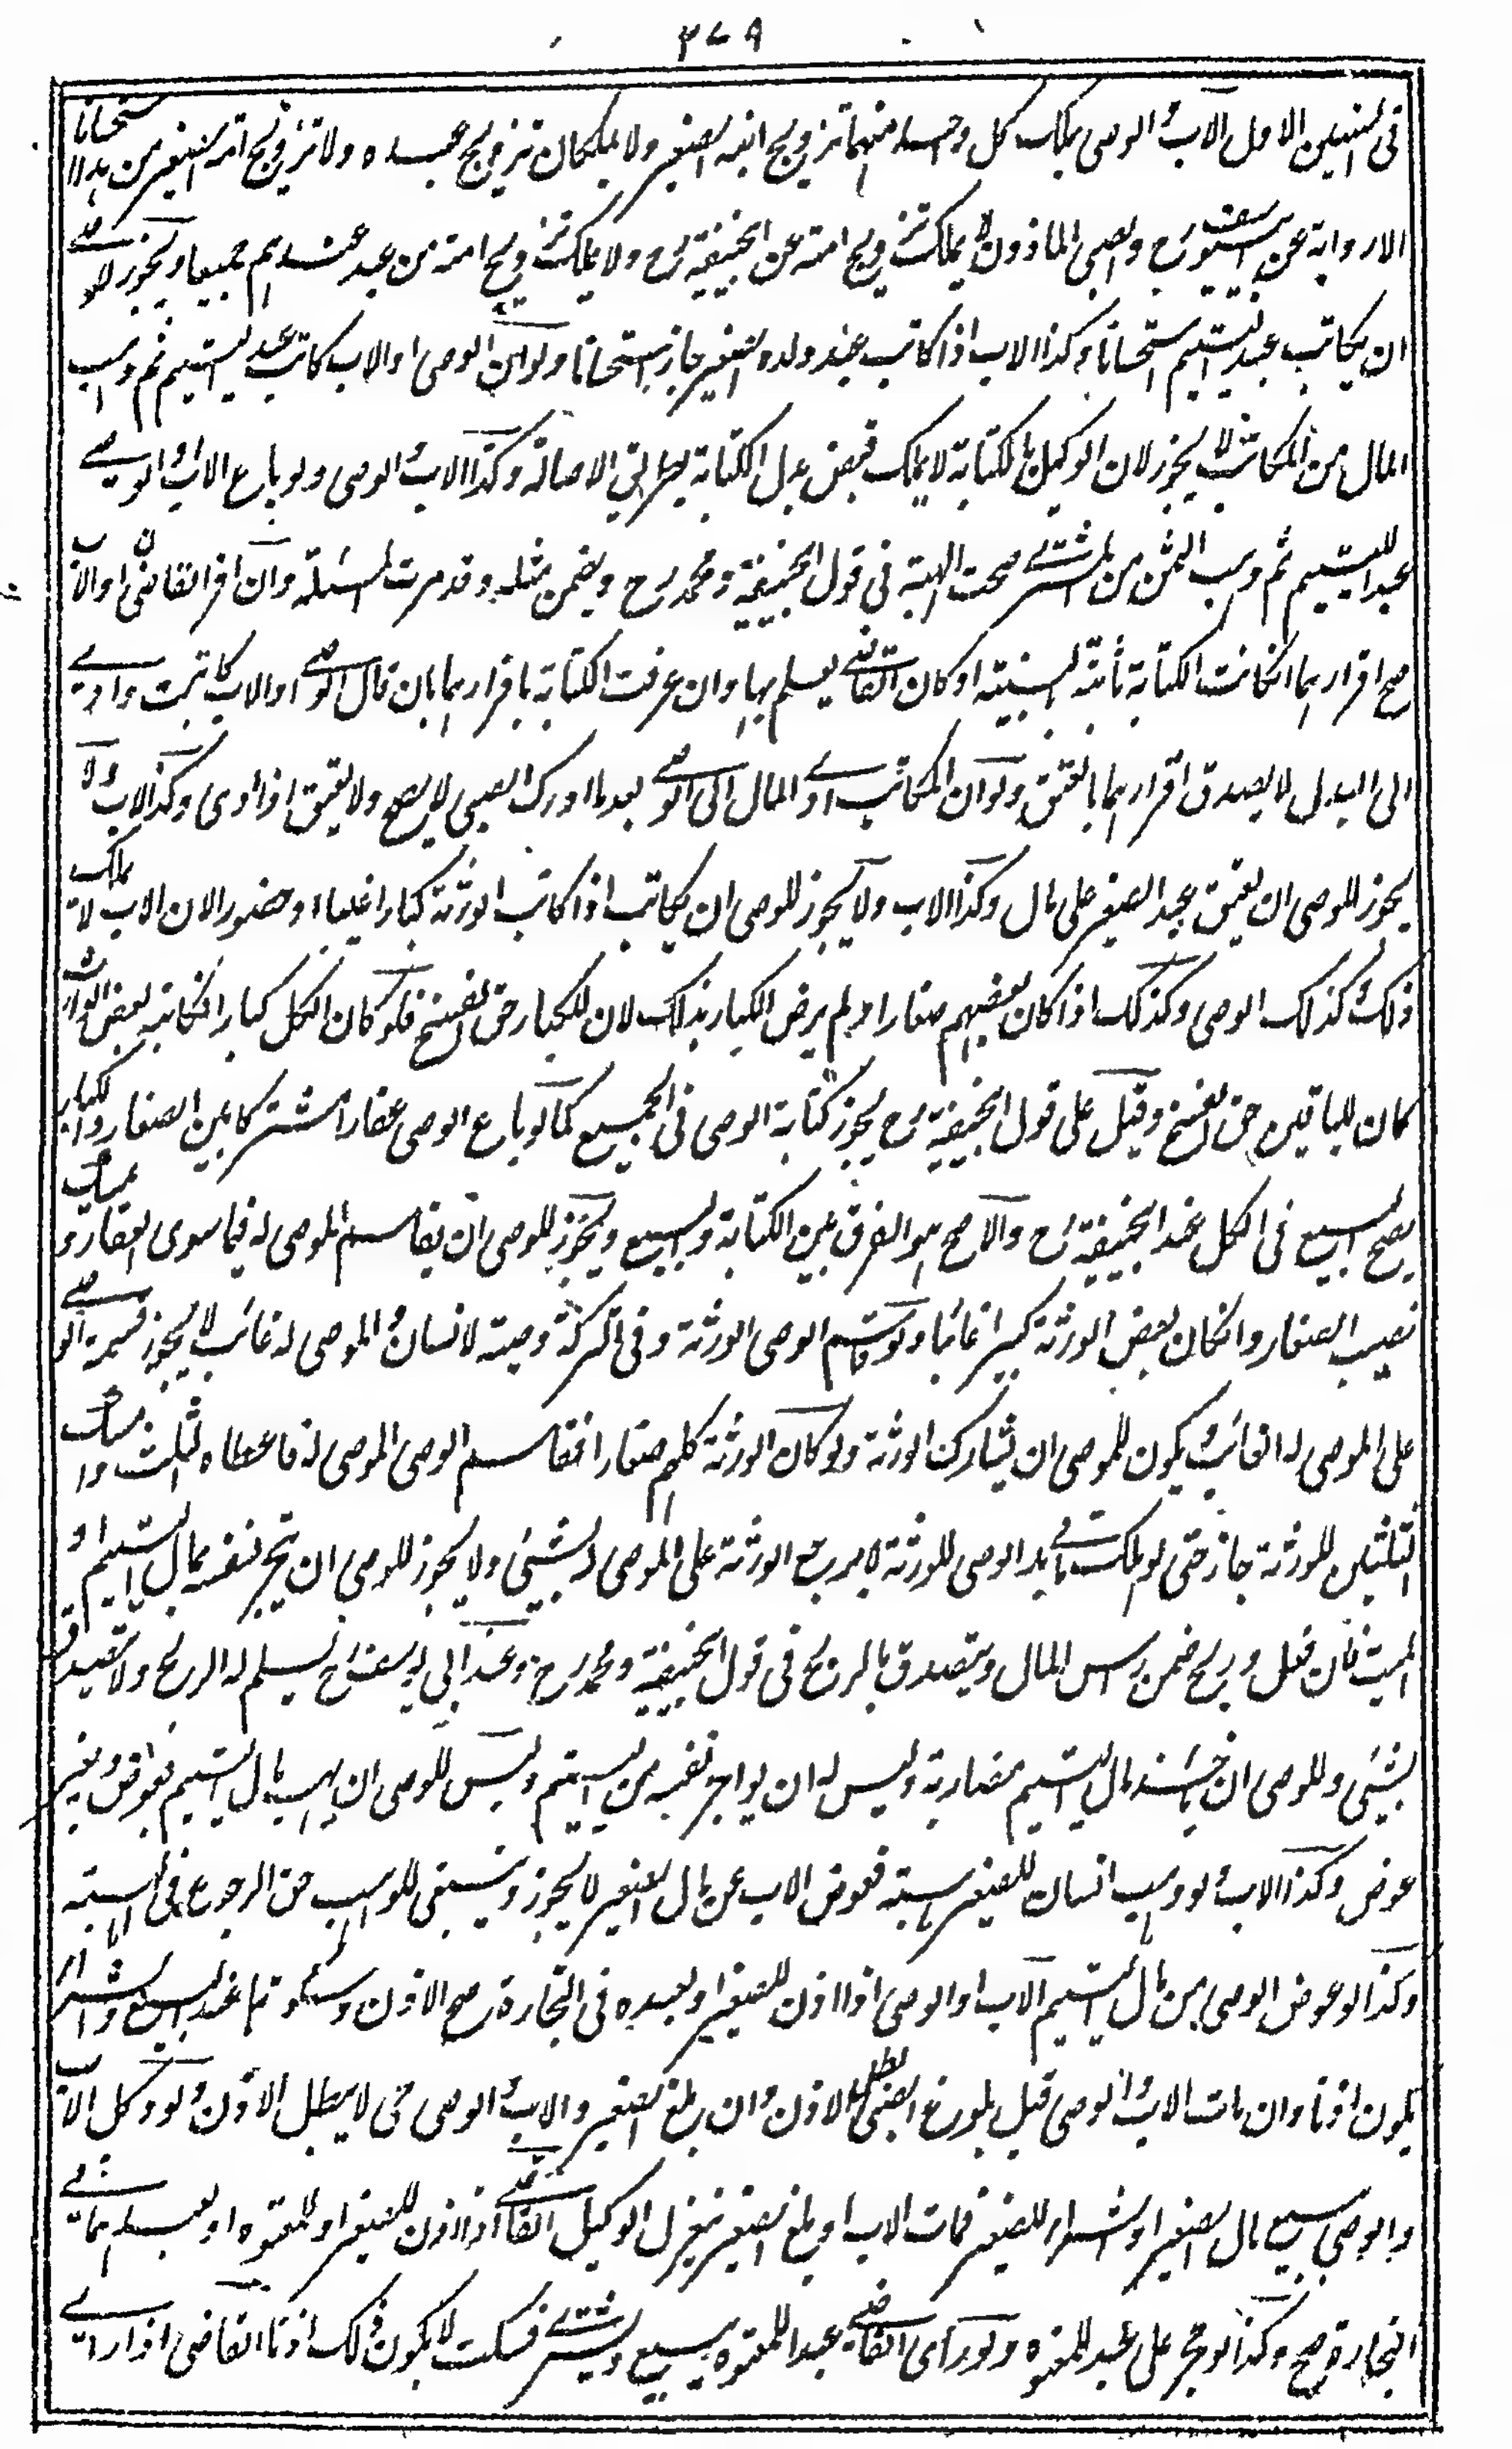 ٣٧٩
فی السنین الاول الاب والوصی یملک کل واحد منهما تزویج امة الصغیر ولا یملکان تزویج عبده ولا تزویج امة الصغیر من عبده الا استحسانا
الا روایة عن ابی یوسف رح والصبی الماذون لا یملک تزویج امته عن ابیحنیفة رح ولا یملک تزویج امته من عبد عندهم جمیعا ویجوز للوصے
ان یکاتب عبد الیتیم استحسانا وکذا الاب اذا کاتب عبد ولده الصغیر جاز استحسانا ولو ان الوصی او الاب کاتب عبد الیتیم ثم وهب
المال من المکاتب لا یجوز لان الوکیل بالکتابة لا یملک قبض بدل الکتابة بطریق الاصالة وکذا الاب والوصی ولو باع الاب او الوصے
عبد الیتیم ثم وهب الثمن من المشترے صحت الهبة فی قول ابیحنیفة ومحمد رح ویضمن مثله وقد مرت المسئلة وان اقر القاضی او الاب
صح اقرارهما انکانت الکتابة ثابتة بالبینة او کان القاضے یعلم بها وان عرفت الکتابة باقرارهما بان قال الوصے او الاب کاتبت وادے
الی البدل لا یصدق اقرارهما بالعتق ولو ان المکاتب ادے المال الی الوصے بعد ما ادرک الصبی لا یصح ولا یعتق اذا ادی وکذا الاب ولا
یجوز للوصی ان یعتق عبد الصغیر علی مال وکذا الاب ولا یجوز للوصی ان یکاتب اذا کانت الورثة کبارا غیابا او حضورا لان الاب لا یملک
ذلک وکذلک الوصی وکذلک اذا کان بعضهم صغارا ولم یرض الکبار بذلک لان للکبار حق الفسخ فلو کان الکل کبارا فکاتبه بعض الورثة
کان للباقین حق الفسخ وقیل علی قول ابیحنیفة رح یجوز کتابة الوصی فی الجمیع کما لو باع الوصی عقارا مشترکا بین الصغار والکبار
یصح البیع فی الکل عند ابیحنیفة رح والاصح هو الفرق بین الکتابة والبیع ویجوز للوصی ان یقاسم الموصی له فیما سوی العقار ویمسک
نصیب الصغار وانکان بعض الورثة کبیرا غائبا ولو قاسم الوصی الورثة وفی الترکة وصیة لانسان والموصی له غائب لا یجوز قسمة الوصے
علی الموصی له الغائب ویکون للموصی ان یشارک الورثة ولو کان الورثة کلهم صغارا فقاسم الوصی الموصی له فاعطاه الثلث وامسک
الثلثین للورثة جاز حتی لو هلک ما فی ید الوصی للورثة لا یرجع الورثة علی الموصی له بشیئ ولا یجوز للوصی ان یتجر لنفسه بمال الیتیم او
المیت فان فعل وربح ضمن راس المال ویتصدق بالربح فی قول ابیحنیفة ومحمد رح وعند ابی یوسف رح یسلم له الربح ولا یتصدق
بشیئ وللوصی ان یاخذ مال الیتیم مضاربة ولیس له ان یواجر نفسه من الیتیم ولیس للوصی ان یهب مال الیتیم بعوض وبغیر
عوض وکذا الاب ولو وهب انسان للصغیر هبة فعوض الاب عن مال الصغیر لا یجوز ویبقی للواهب حق الرجوع فی الهبة
وکذا لو عوض الوصی من مال الیتیم الاب او الوصی اذا اذن للصغیر او لعبده فی التجارة صح الاذن وسکوتهما عند البیع والشراء
یکون اذنا وان مات الاب او الوصی قبل بلوغ الصغیر بطل الاذن وان بلغ الصغیر والاب والوصی حی لا یبطل الاذن ولو وکل الاب
والوصی ببیع مال الصغیر او بشراء للصغیر فمات الاب او بلغ الصغیر ینعزل الوکیل القاضے اذا اذن للصغیر او للمعتوه او لعبدهما فے
التجارة صح وکذا لو حجر علی عبد المعتوه ولو رای القاضے عبد المعتوه یبیع ویشترے فسکت لا یکون ذلک اذنا القاضی اذا رائے